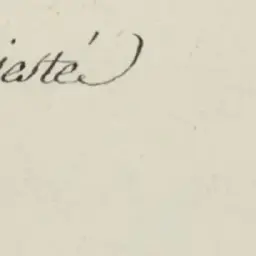 jesté